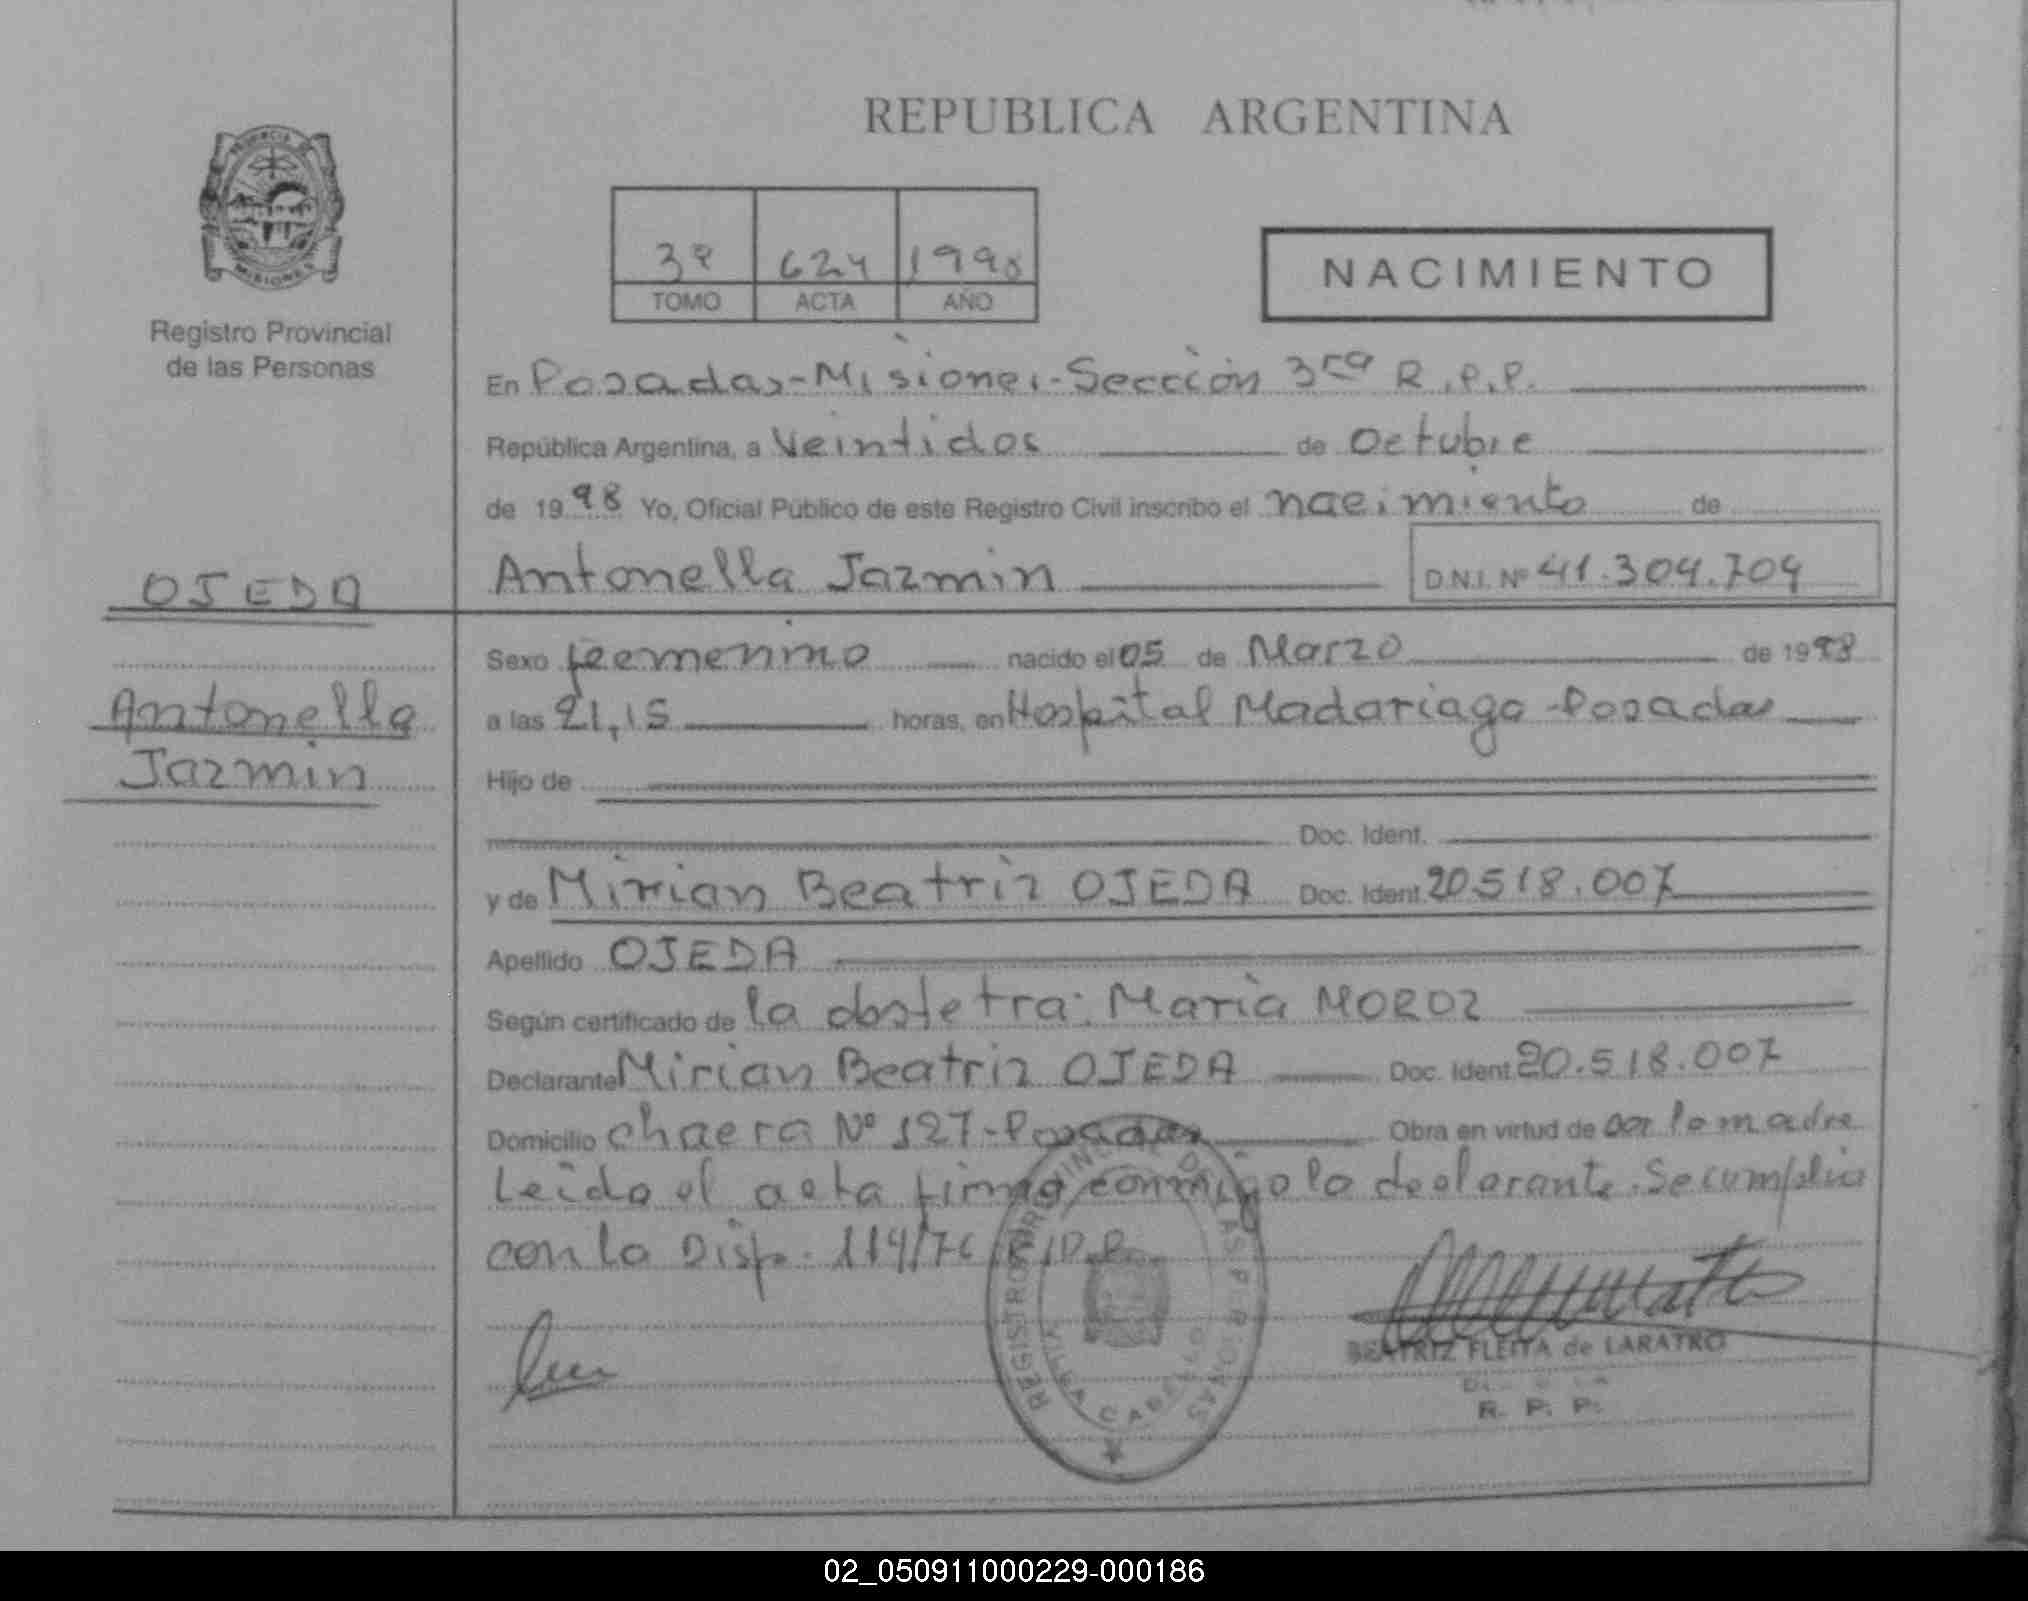 REPUBLICA ARGENTINA
3º 624 1998
TOMO ACTA AÑO
NACIMIENTO
PROVINCIA DE
MISIONES
Registro Provincial
de las Personas
En Posadas-Misiones-Sección 3ra R.P.P.
República Argentina, a Veintidos de Octubre
de 1998 Yo, Oficial Público de este Registro Civil inscribo el nacimiento de
Antonella Jazmin D.N.I. Nº 41.304.704
OJEDA
Antonella
Jazmin
Sexo feemenino nacido el 05 de Marzo de 1998
a las 21,15 horas, en Hospital Madariaga-Posadas
Hijo de
Doc. Ident.
y de Mirian Beatriz OJEDA Doc. Ident. 20.518.007
Apellido OJEDA
Según certificado de la obstetra: Maria MOROZ
Declarante Mirian Beatriz OJEDA Doc. Ident. 20.518.007
Domicilio chacra Nº 127-Posadas Obra en virtud de ser la madre
Leida el acta firma conmigo la declarante. Se cumplio
con la Disp. 114/76
REGISTRO PROVINCIAL DE LAS PERSONAS
VILLA CABELLO
BEATRIZ FLEITA de LARATRO
R. P. P.
02_050911000229-000186